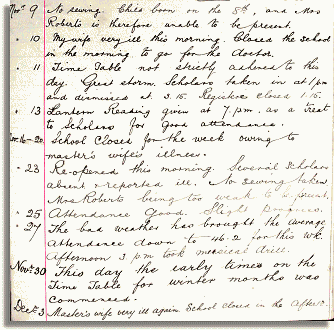 Nov. 9 No sewing. Child born on the 8th and Mrs
Roberts is therefore unable to be present.
" 10 My wife very ill this morning. Closed the school
in the morning to go for the doctor.
" 11 Time Table not strictly adhered to this
day. Great storm. Scholars taken in at 1 pm
and dismissed at 3.15. Registers closed at 1.15.
" 13 Lantern Reading given at 7 p.m. as a Treat
to Scholars for Good attendance.
Nov. 16-20. School Closed for the week owing to
master's wife's illness.
" 23 Re-opened this morning. Several scholars
absent & reported ill. No Sewing taken
Mrs Roberts being too weak to be present.
" 25 Attendance Good. Slight
" 27 The bad weather has brought the average
attendance down to 46.2 for this wk.
Afternoon 3 pm took musical drill.
Nov. 30 This day the early times on the
Time Table for winter months was
commenced.
Dec. 3 Master's wife very ill again. School closed in the After.